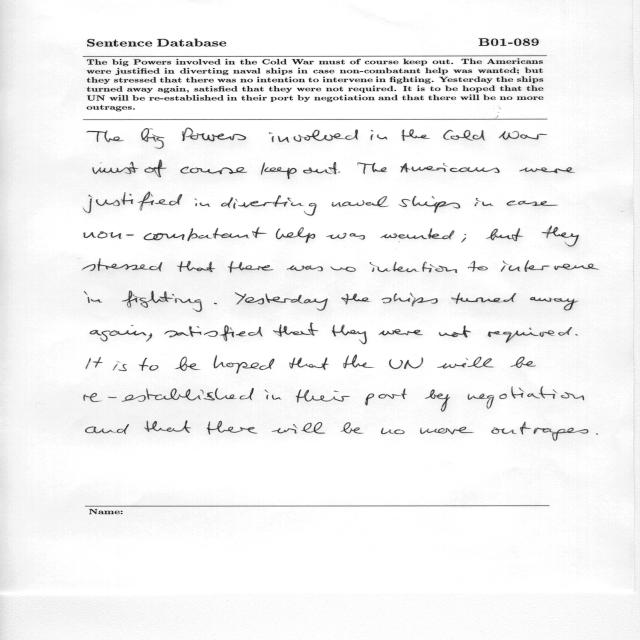 Sentence Database B01-089
The big Powers involved in the Cold War must of course keep out. The Americans
were justified in diverting naval ships in case non-combatant help was wanted; but
they stressed that there was no intention to intervene in fighting. Yesterday the ships
turned away again, satisfied that they were not required. It is to be hoped that the
UN will be re-established in their port by negotiation and that there will be no more
outrages.
The big Powers involved in the Cold War
must of course keep out. The Americans were
justified in diverting naval ships in case
non-combatant help was wanted; but they
stressed that there was no intention to intervene
in fighting. Yesterday the ships turned away
again, satisfied that they were not required.
It is to be hoped that the UN will be
re-established in their port by negotiation
and that there will be no more outrages.
Name: